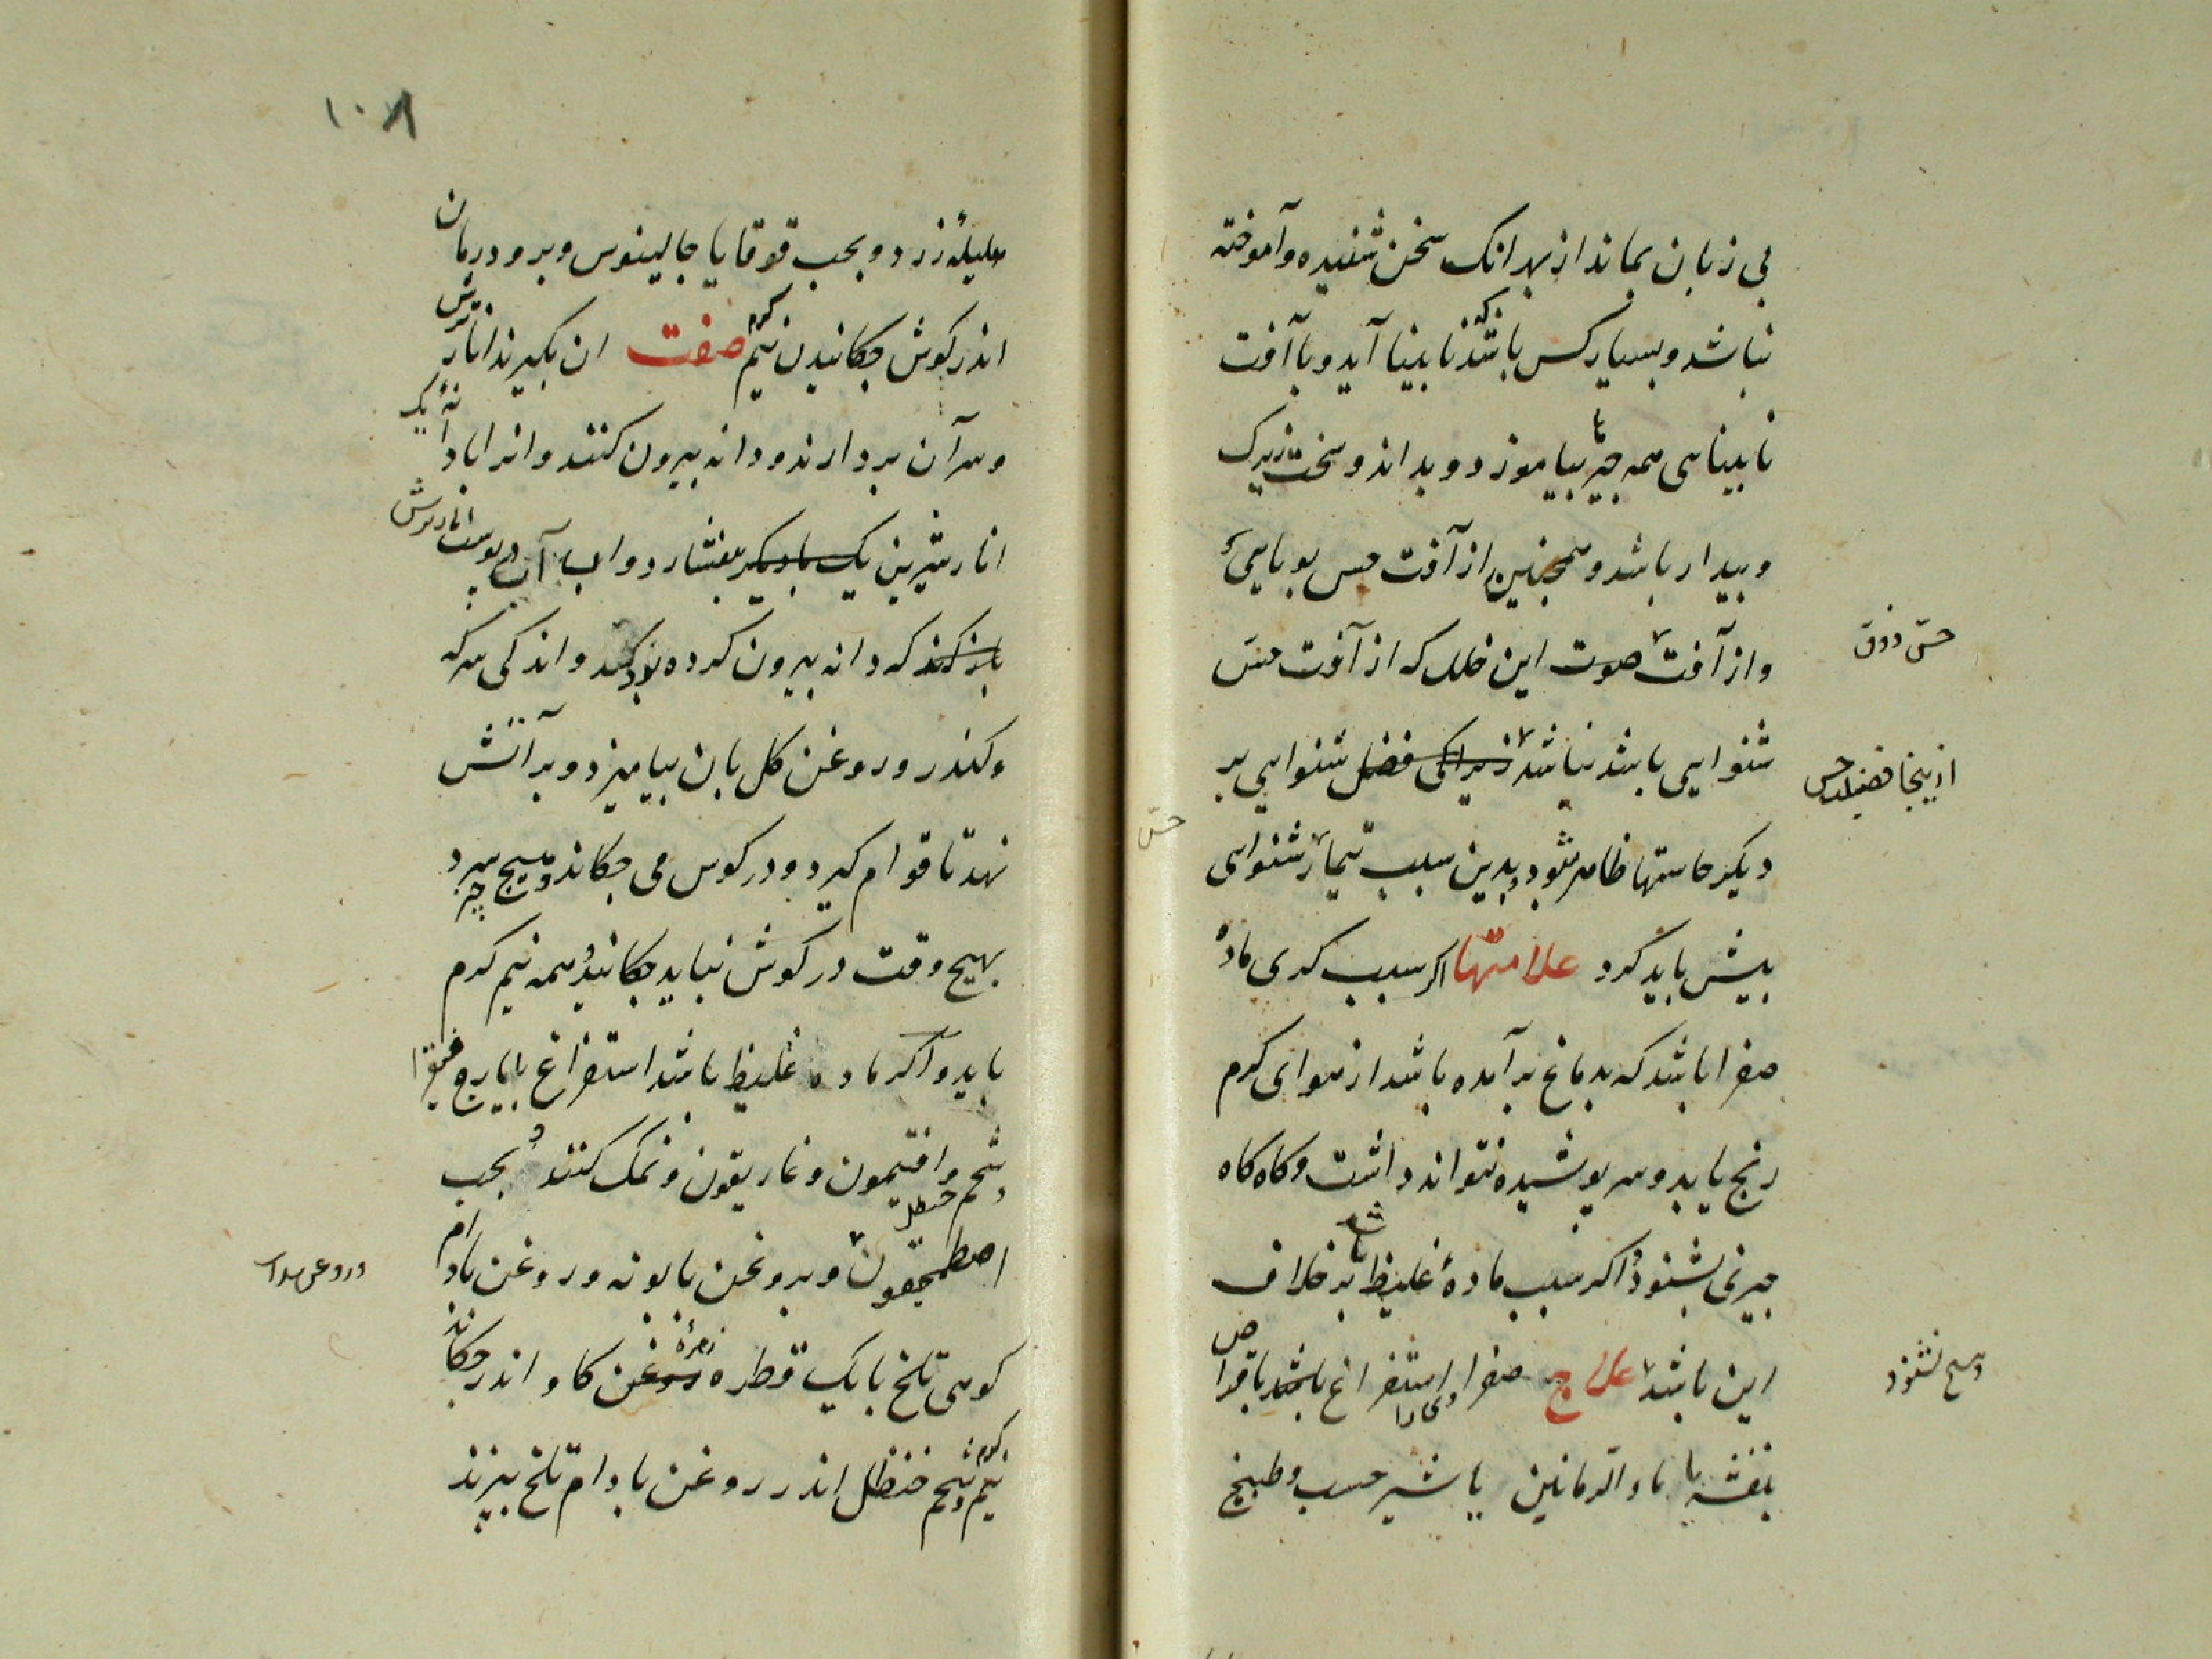 بی زبان بماند از بهر انک سخن شنیده و آموخته
نباشد و بسیار کس باشد که نابینا آید و با آفت
نابینایی همه چیز بیاموزد و بداند و سخت زیرک
و بیدار باشد و همچنین از آفت حس بویایی
و از آفت صوت این خلل که از آفت حس
حس ذوق
شنوایی باشد نباشد زیراکی فضل شنوایی بر
ازینجا فضیلت حس
دیگر حاستها ظاهر شود و بدین سبب تیمار شنوایی
حس
بیش باید کرد علامتها اگر سبب کری ماده
صفرا باشد که بدماغ برآمده باشد از هوای گرم
رنج یابد و سر پوشیده نتواند داشت و کاه کاه
چیزی بشنود و اگر سبب مادهٔ غلیظ باشد بر خلاف
این باشد علاج صفرا استفراغ باشد باقراص
و هیچ نشنود
بنفشه یا ماء الرمانین یا شیر خشت و طبیخ
۱۰۸
هلیلهٔ زرد و بحب قوقایا جالینوس و بر و درمان
اندر کوش چکانیدن نیم کرم صفت ان بکیرند انار ترش
و سر آن بردارند و دانه بیرون کنند و انرا با دانهٔ یک
انار شیرین یک بادیکر بفشارد و اب آن در پوست انار ترش
باز کند که دانه بیرون کرده بود کند و اندکی سرکه
و کندر و روغن کل بان بیامیزد و بر آتش
نهد تا قوام کیرد و در کوش می چکاند و هیچ چیز سرد
بهیچ وقت در کوش نباید چکانید و همه نیم کرم
باید و اکر ماده غلیظ باشد استفراغ بایارج فیقرا
و شحم حنظل و افتیمون و غاریقون و نمک کنند و بحب
اصطمخیقون و بروغن بابونه و روغن بادام
و روغن سداب
کوهی تلخ با یک قطره زهرهٔ روغن کاو اندر چکاند
نیم کرم و شحم حنظل اندر روغن بادام تلخ بپزند